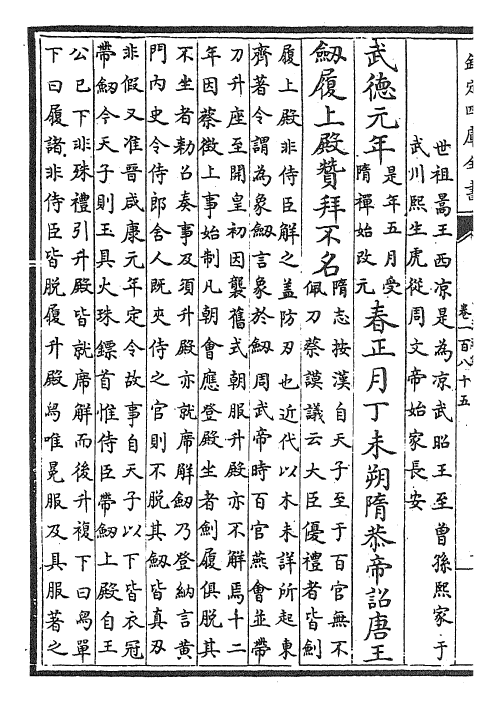 欽定四庫全書
卷一百八十五
世祖暠王西凉是為凉武昭王至曾孫熙家于
武川熙生虎從周文帝始家長安
武德元年是年五月受隋禪始改元春正月丁未朔隋恭帝詔唐王
劒履上殿贊拜不名隋志按漢自天子至于百官無不佩刀蔡謨議云大臣優禮者皆劍
履上殿非侍臣解之盖防刃也近代以木未詳所起東
齊著令謂為象劒言象於劒周武帝時百官燕會並帶
刀升座至開皇初因襲舊式朝服升殿亦不解焉十二
年因蔡徴上事始制凡朝會應登殿坐者劍履俱脫其
不坐者勅召奏事及須升殿亦就席解劒乃登納言黄
門内史令侍郎舍人既夾侍之官則不脫其劒皆真刃
非假又准晉咸康元年定令故事自天子以下皆衣冠
帶劒今天子則王具火珠鏢首惟侍臣帶劒上殿自王
公已下非珠禮引升殿皆就席解而後升複下曰舄單
下曰履諸非侍臣皆脫履升殿舄唯冕服及具服著之